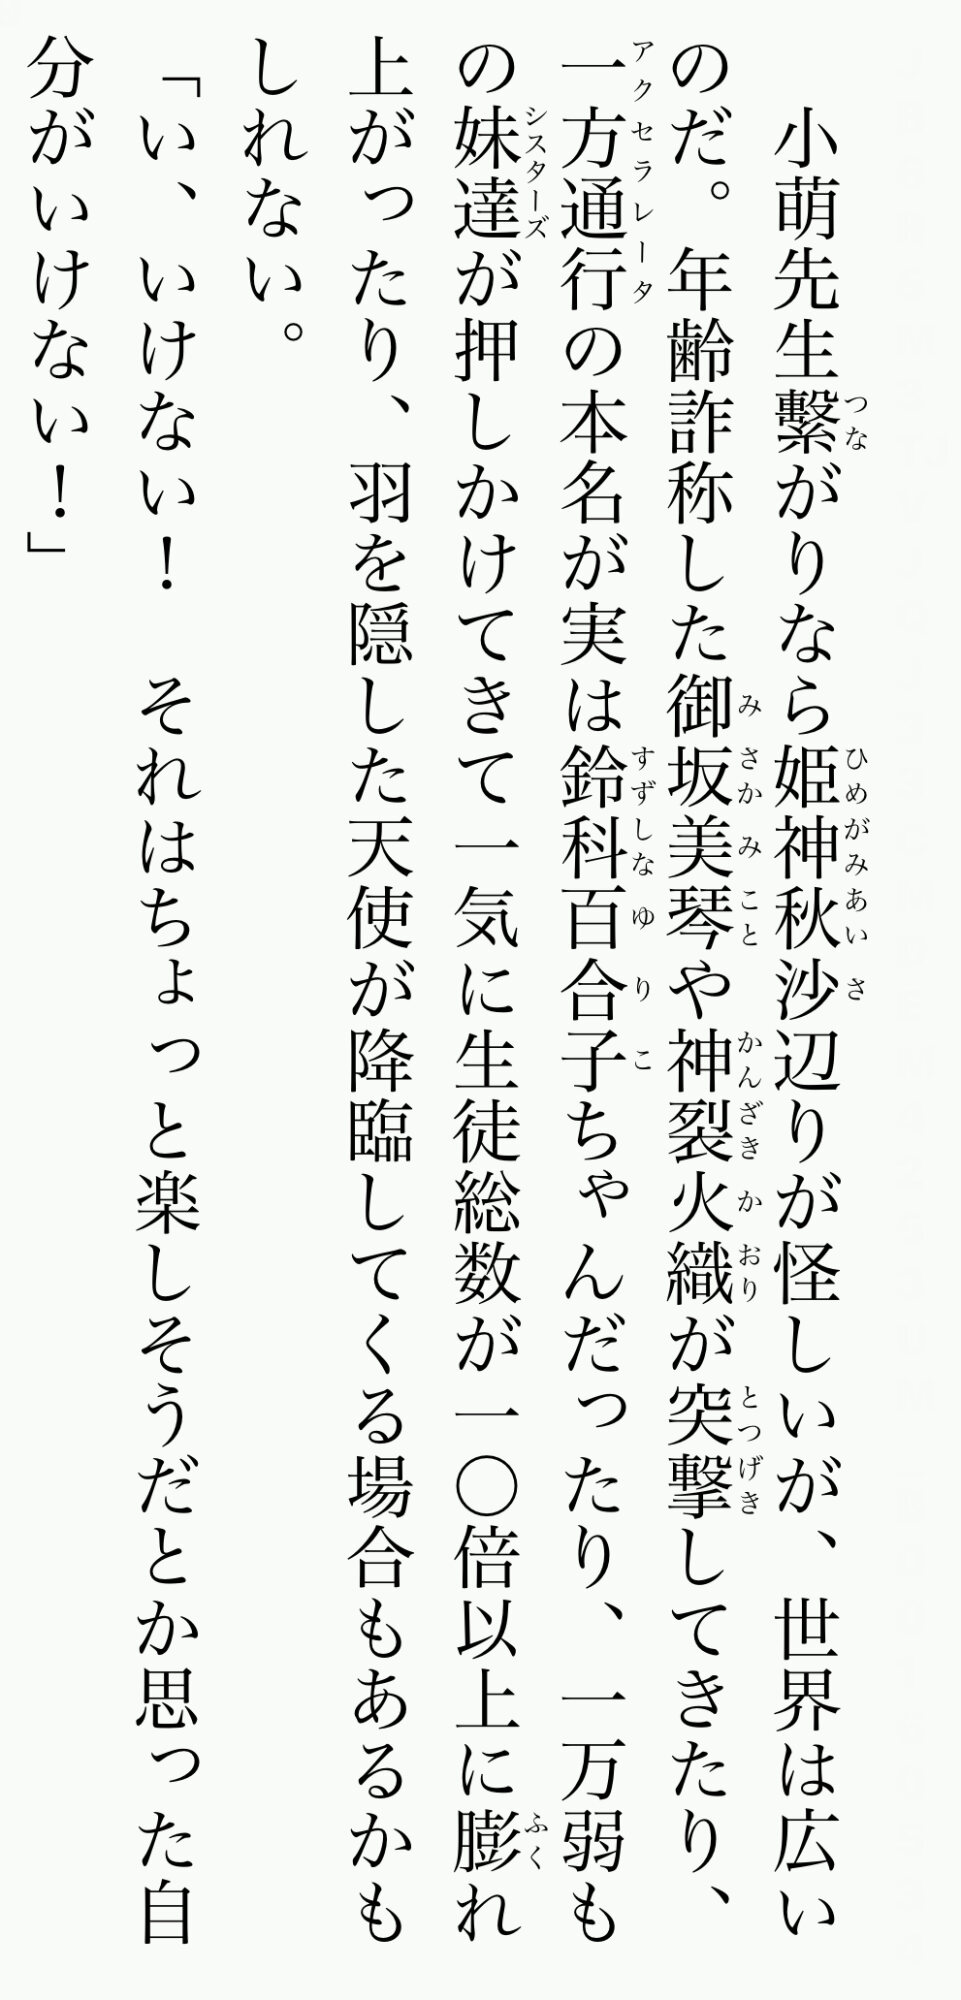 小萌先生繋がりなら姫神秋沙辺りが怪しいが、世界は広い
のだ。年齢詐称した御坂美琴や神裂火織が突撃してきたり、
一方通行の本名が実は鈴科百合子ちゃんだったり、一万弱も
の妹達が押しかけてきて一気に生徒総数が一〇倍以上に膨れ
上がったり、羽を隠した天使が降臨してくる場合もあるかも
しれない。
「い、いけない！　それはちょっと楽しそうだとか思った自
分がいけない！」